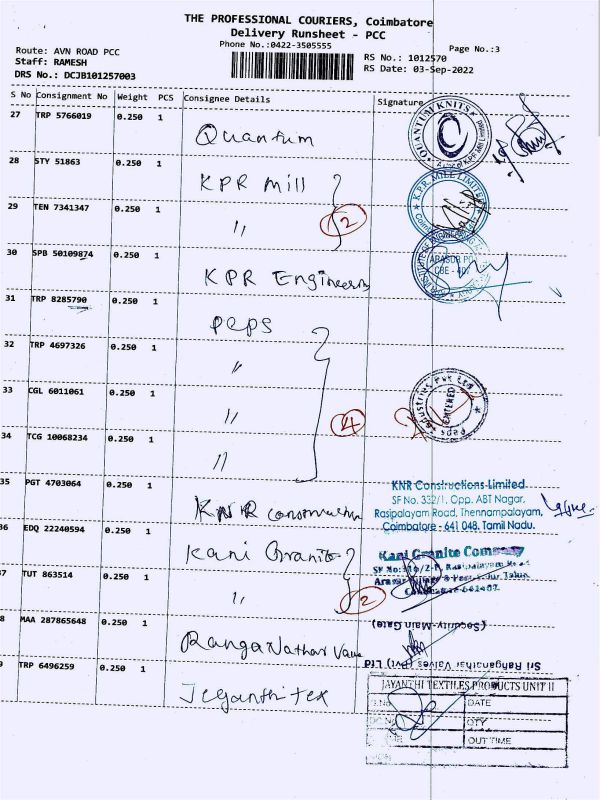 THE PROFESSIONAL COURIERS, Coimbatore
Delivery Runsheet - PCC
Phone No.:0422-3505555
Page No.:3
Route: AVN ROAD PCC
Staff: RAMESH
DRS No.: DCJB101257003
RS No.: 1012570
RS Date: 03-Sep-2022
S No Consignment No Weight PCS Consignee Details Signature
27 TRP 5766019 0.250 1 Quantum
QUANTUM KNITS
28 STY 51863 0.250 1 KPR Mill
K.P.R. MILL LIMITED
29 TEN 7341347 0.250 1 "
2
30 SPB 50109874 0.250 1 KPR Engineering
ARASUR PO
CBE - 407
31 TRP 8285790 0.250 1 Peps
32 TRP 4697326 0.250 1 "
33 CGL 6011061 0.250 1 "
4
Peps Industries Pvt Ltd
ENTERED
34 TCG 10068234 0.250 1 "
35 PGT 4703064 0.250 1 KNR Construction
KNR Constructions Limited
SF No. 332/1, Opp. ABT Nagar,
Rasipalayam Road, Thennampalayam,
Coimbatore - 641 048. Tamil Nadu.
36 EDQ 22240594 0.250 1 Kani Granite
Kani Granite Company
Rasipalayam Road
7 TUT 863514 0.250 1 "
2
8 MAA 287865648 0.250 1 Ranganathar Valve
(Security-Main Gate)
Sri Ranganathar Valves (Pvt) Ltd
9 TRP 6496259 0.250 1 Jeyanthi tex
JAYANTHI TEXTILES PRODUCTS UNIT II
DATE
QTY
OUT TIME